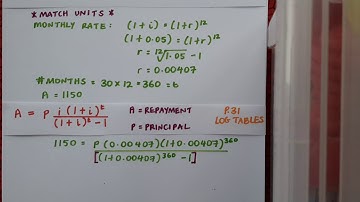 * MATCH UNITS *
MONTHLY RATE: (1+i) = (1+r)^12
(1+0.05) = (1+r)^12
r = ¹²√1.05 - 1
r = 0.00407
# MONTHS = 30 × 12 = 360 = t
A = 1150
A = P i(1+i)^t / (1+i)^t - 1
A = REPAYMENT
P = PRINCIPAL
P.31
LOG TABLES
1150 = P(0.00407)(1+0.00407)^360
[(1+0.00407)^360 - 1]